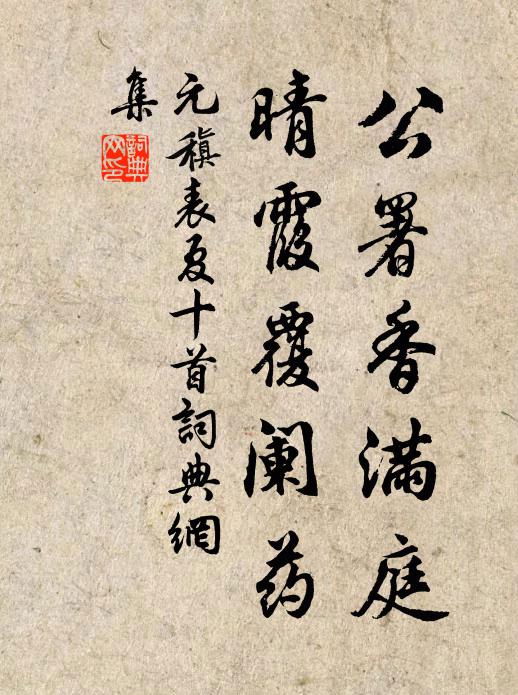 公署香满庭
晴霞覆阑药
元稹表夏十首詞典網
集
詞典网印